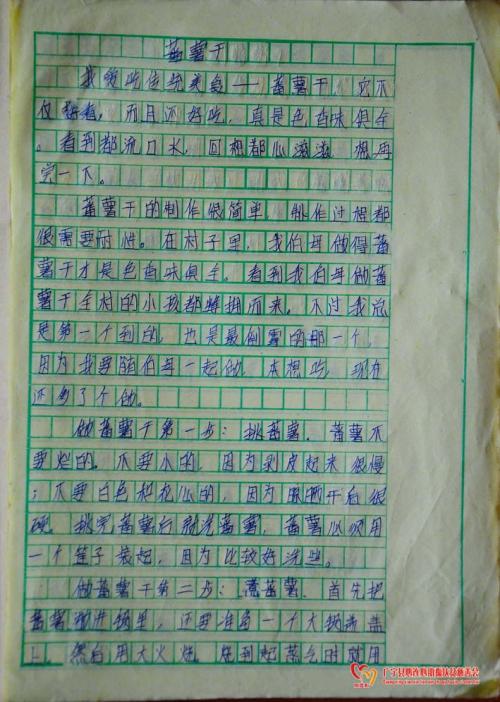 蕃薯干
我爱吃传统美食——蕃薯干，它不
仅好看，而且还好吃，真是色香味俱全
。看到都流口水，回想都心滋滋 想再
尝一下。
蕃薯干的制作很简单，制作过程都
很需要耐性。在村子里，我伯母做得蕃
薯干才是色香味俱全，看到我伯母做蕃
薯干全村的小孩都蜂拥而来，不过我总
是第一个到的，也是最倒霉的那一个，
因为我要随伯母一起做，本想吃，现在
还多了个做。
做蕃薯干第一步：挑蕃薯，蕃薯不
要烂的。不要小的，因为剥皮起来很慢
；不要白色和花心的，因为晒干后很
硬，挑完蕃薯后就洗蕃薯，蕃薯必须用
一个篮子装起，因为比较好洗些。
做蕃薯干第二步：煮蕃薯，首先把
蕃薯放进锅里，还要准备一个大锅盖盖
上，然后用大火烧，烧到起蒸气时就用